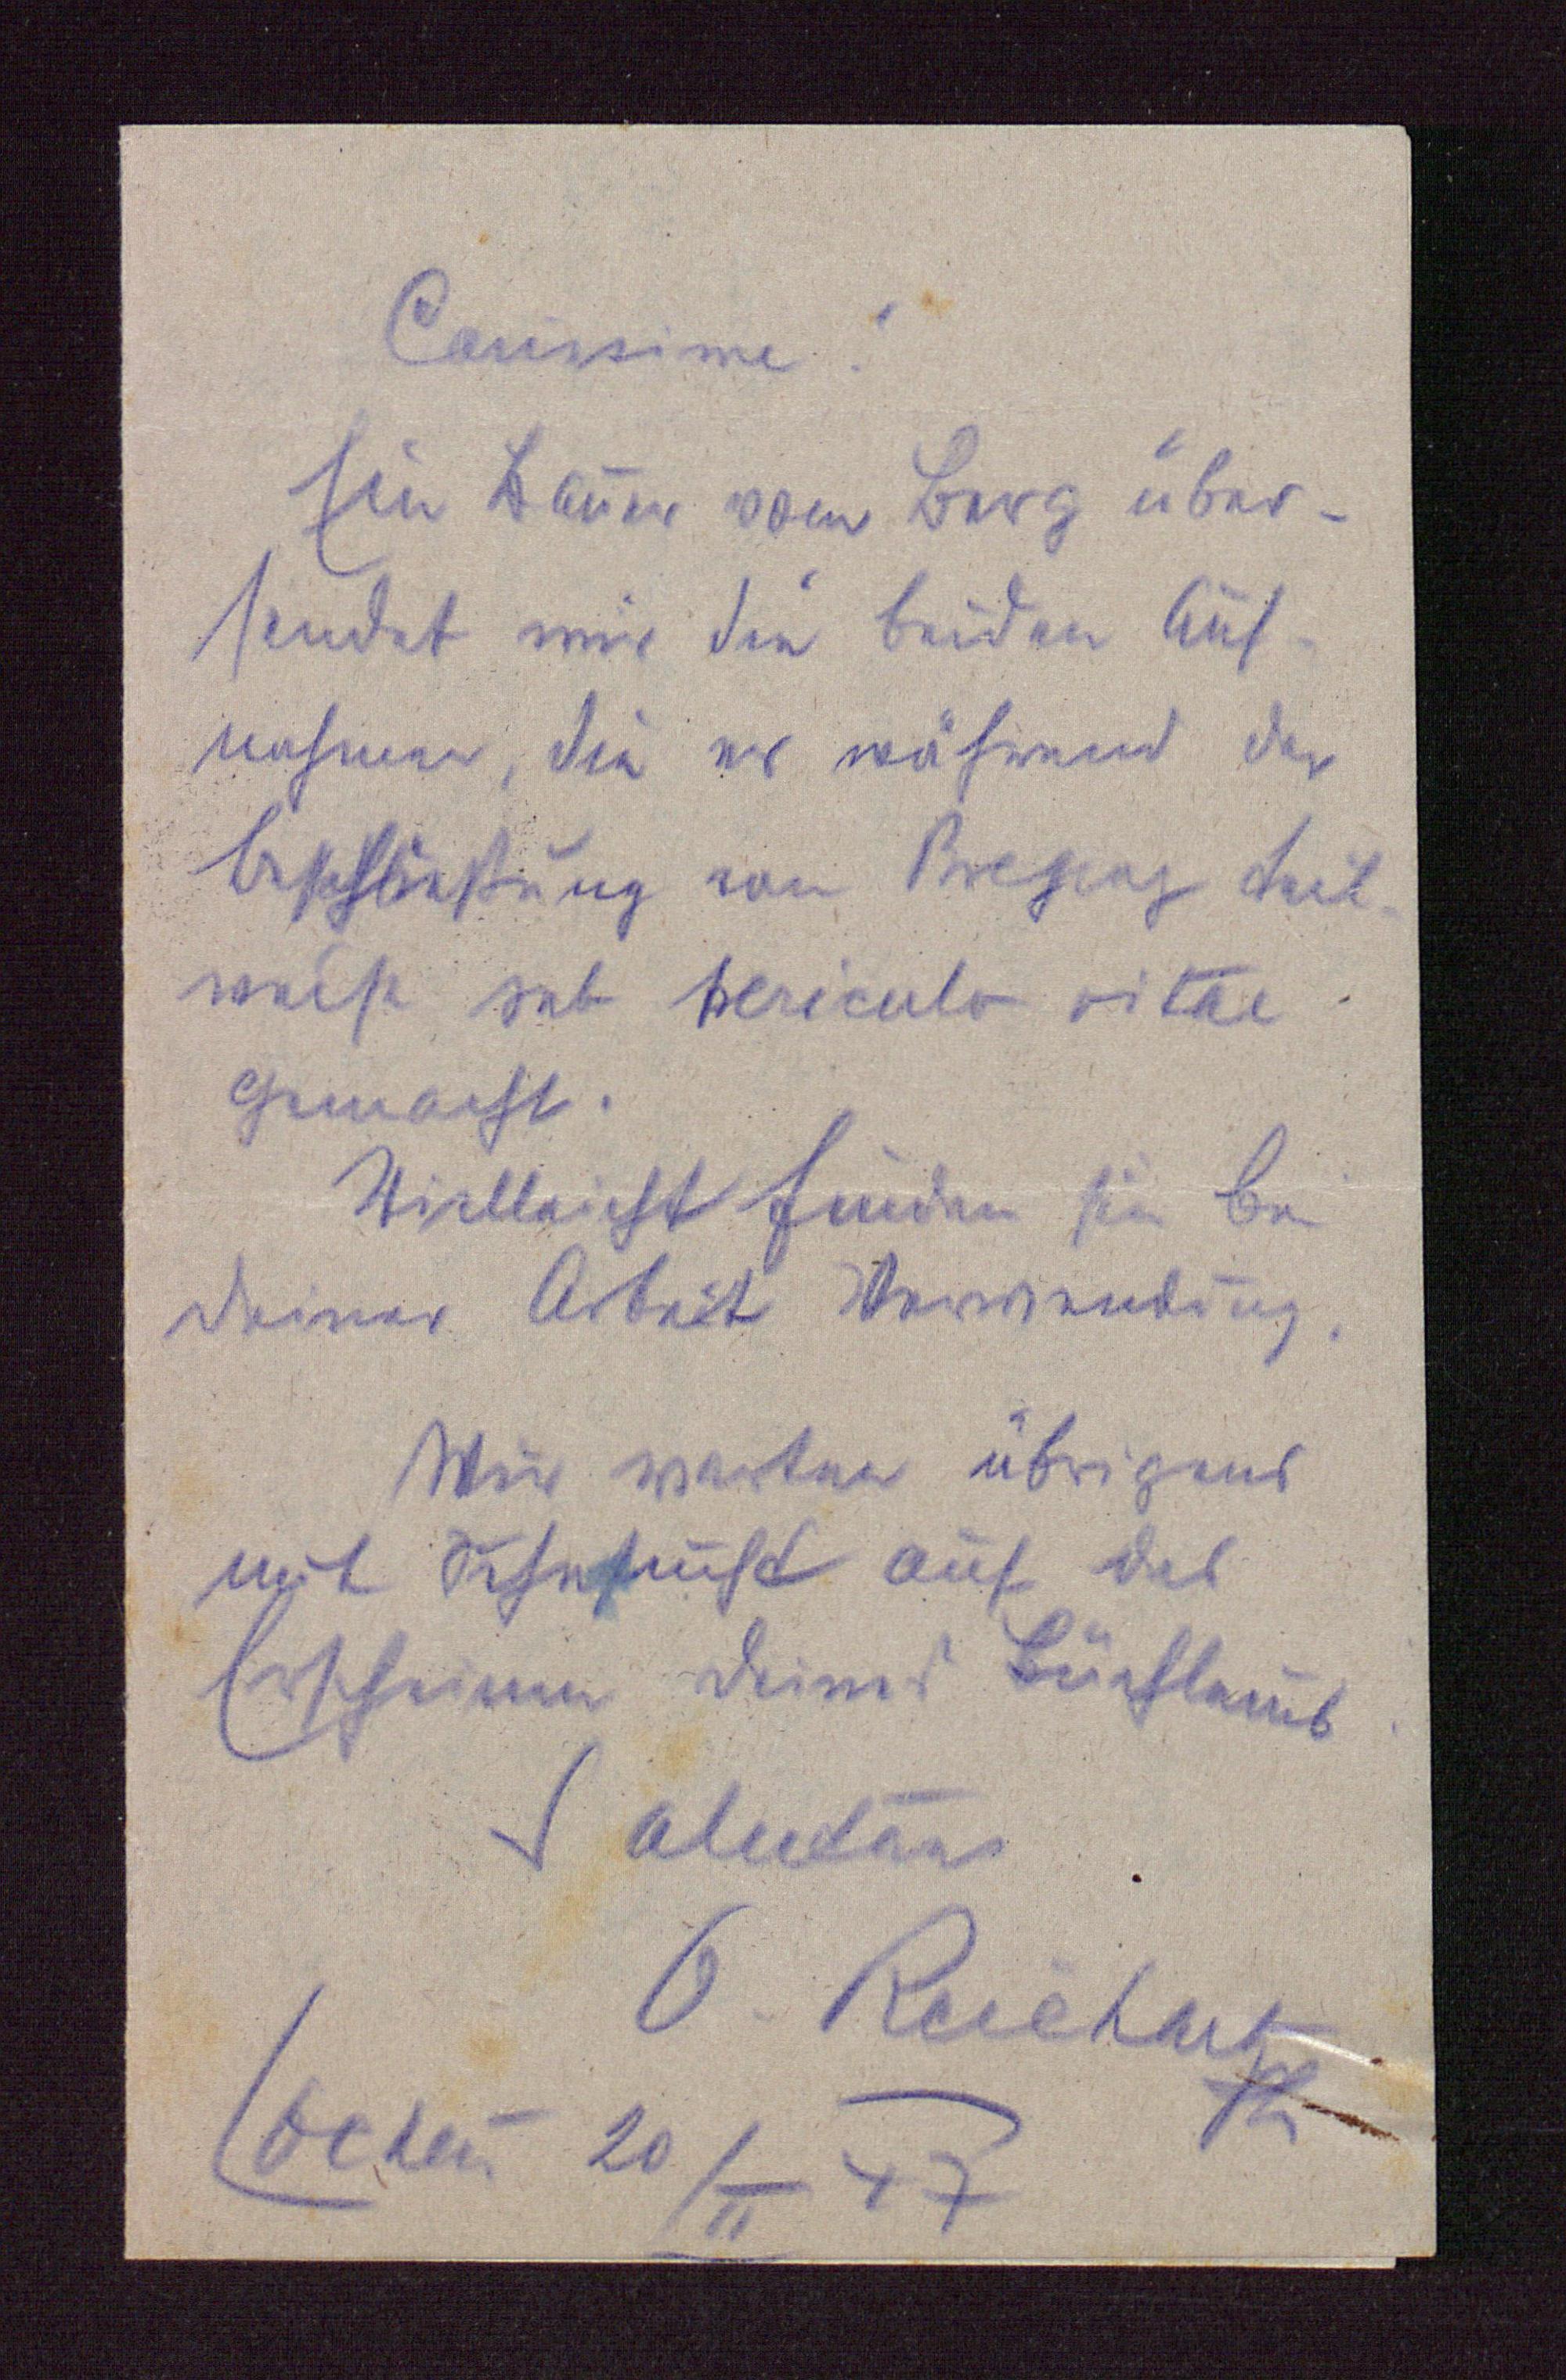 Carissime!
Ein Bauer vom Berg über-
sendet mir die beiden Auf-
nahmen, die er während der
Beschießung von Bregenz teil-
weise sub periculo vitae
gemacht.
Vielleicht finden sie bei
deiner Arbeit Verwendung.
Wir warten übrigens
mit Sehnsucht auf das
Erscheinen deines Büchleins.
Salutans
O. Reichart
Lochau 20/II 47